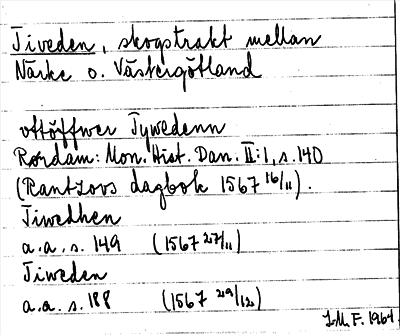 Tiveden, skogstrakt mellan
Närke o. Västergötland
vttöffwer Tywedenn
Rørdam: Mon. Hist. Dan. II:1, s. 140
(Rantzovs dagbok 1567 16/11).
Tiwedhen
a.a. s. 149 (1567 27/11)
Tiweden
a.a. s. 188 (1567 29/12)
I.M.F. 1961.